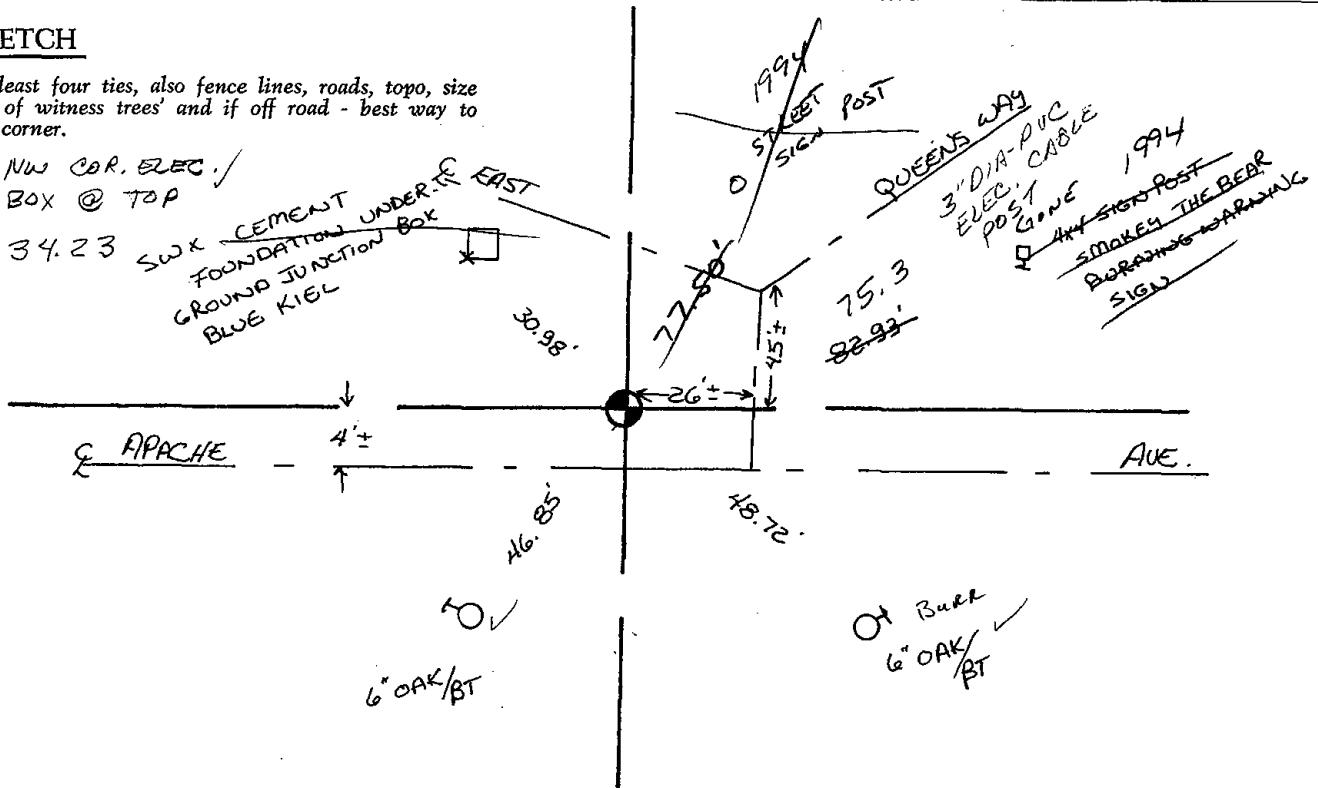 ETCH
least four ties, also fence lines, roads, topo, size
of witness trees' and if off road - best way to
corner.
NW COR. ELEC.
BOX @ TOP
34.23
SWX CEMENT
FOUNDATION UNDER
GROUND JUNCTION BOX
BLUE KIEL
℄ EAST
30.98'
1994
STREET
SIGN POST
77.90'
QUEENS WAY
3" DIA-PVC
ELEC. CABLE
POST
GONE 1994
4x4 SIGN POST
SMOKEY THE BEAR
BURNING WARNING
SIGN
75.3
82.93'
45'±
26'±
4'±
℄ APACHE AVE.
46.85'
48.72'
6" OAK/BT
BURR
6" OAK/BT